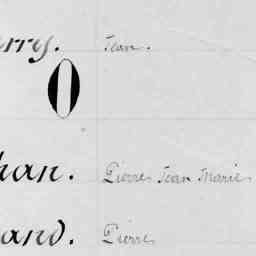 erry. Jean.
O
han. Pierre Jean Marie
and. Pierre